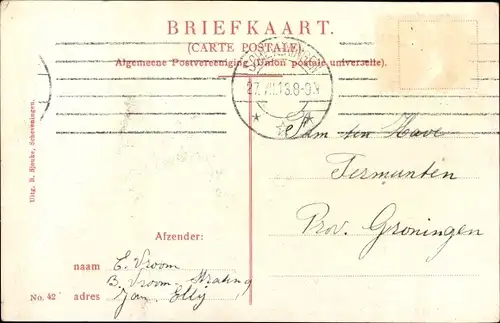 BRIEFKAART.
(CARTE POSTALE).
Algemeene Postvereeniging (Union postale universelle).
27.VII.13.8-9.N
Uitg. R. Sjouke, Scheveningen.
Fam ten Have
Termunten
Prov. Groningen
Afzender:
naam E. Vroom
B. Vroom
No. 42 adres Jan. Elly